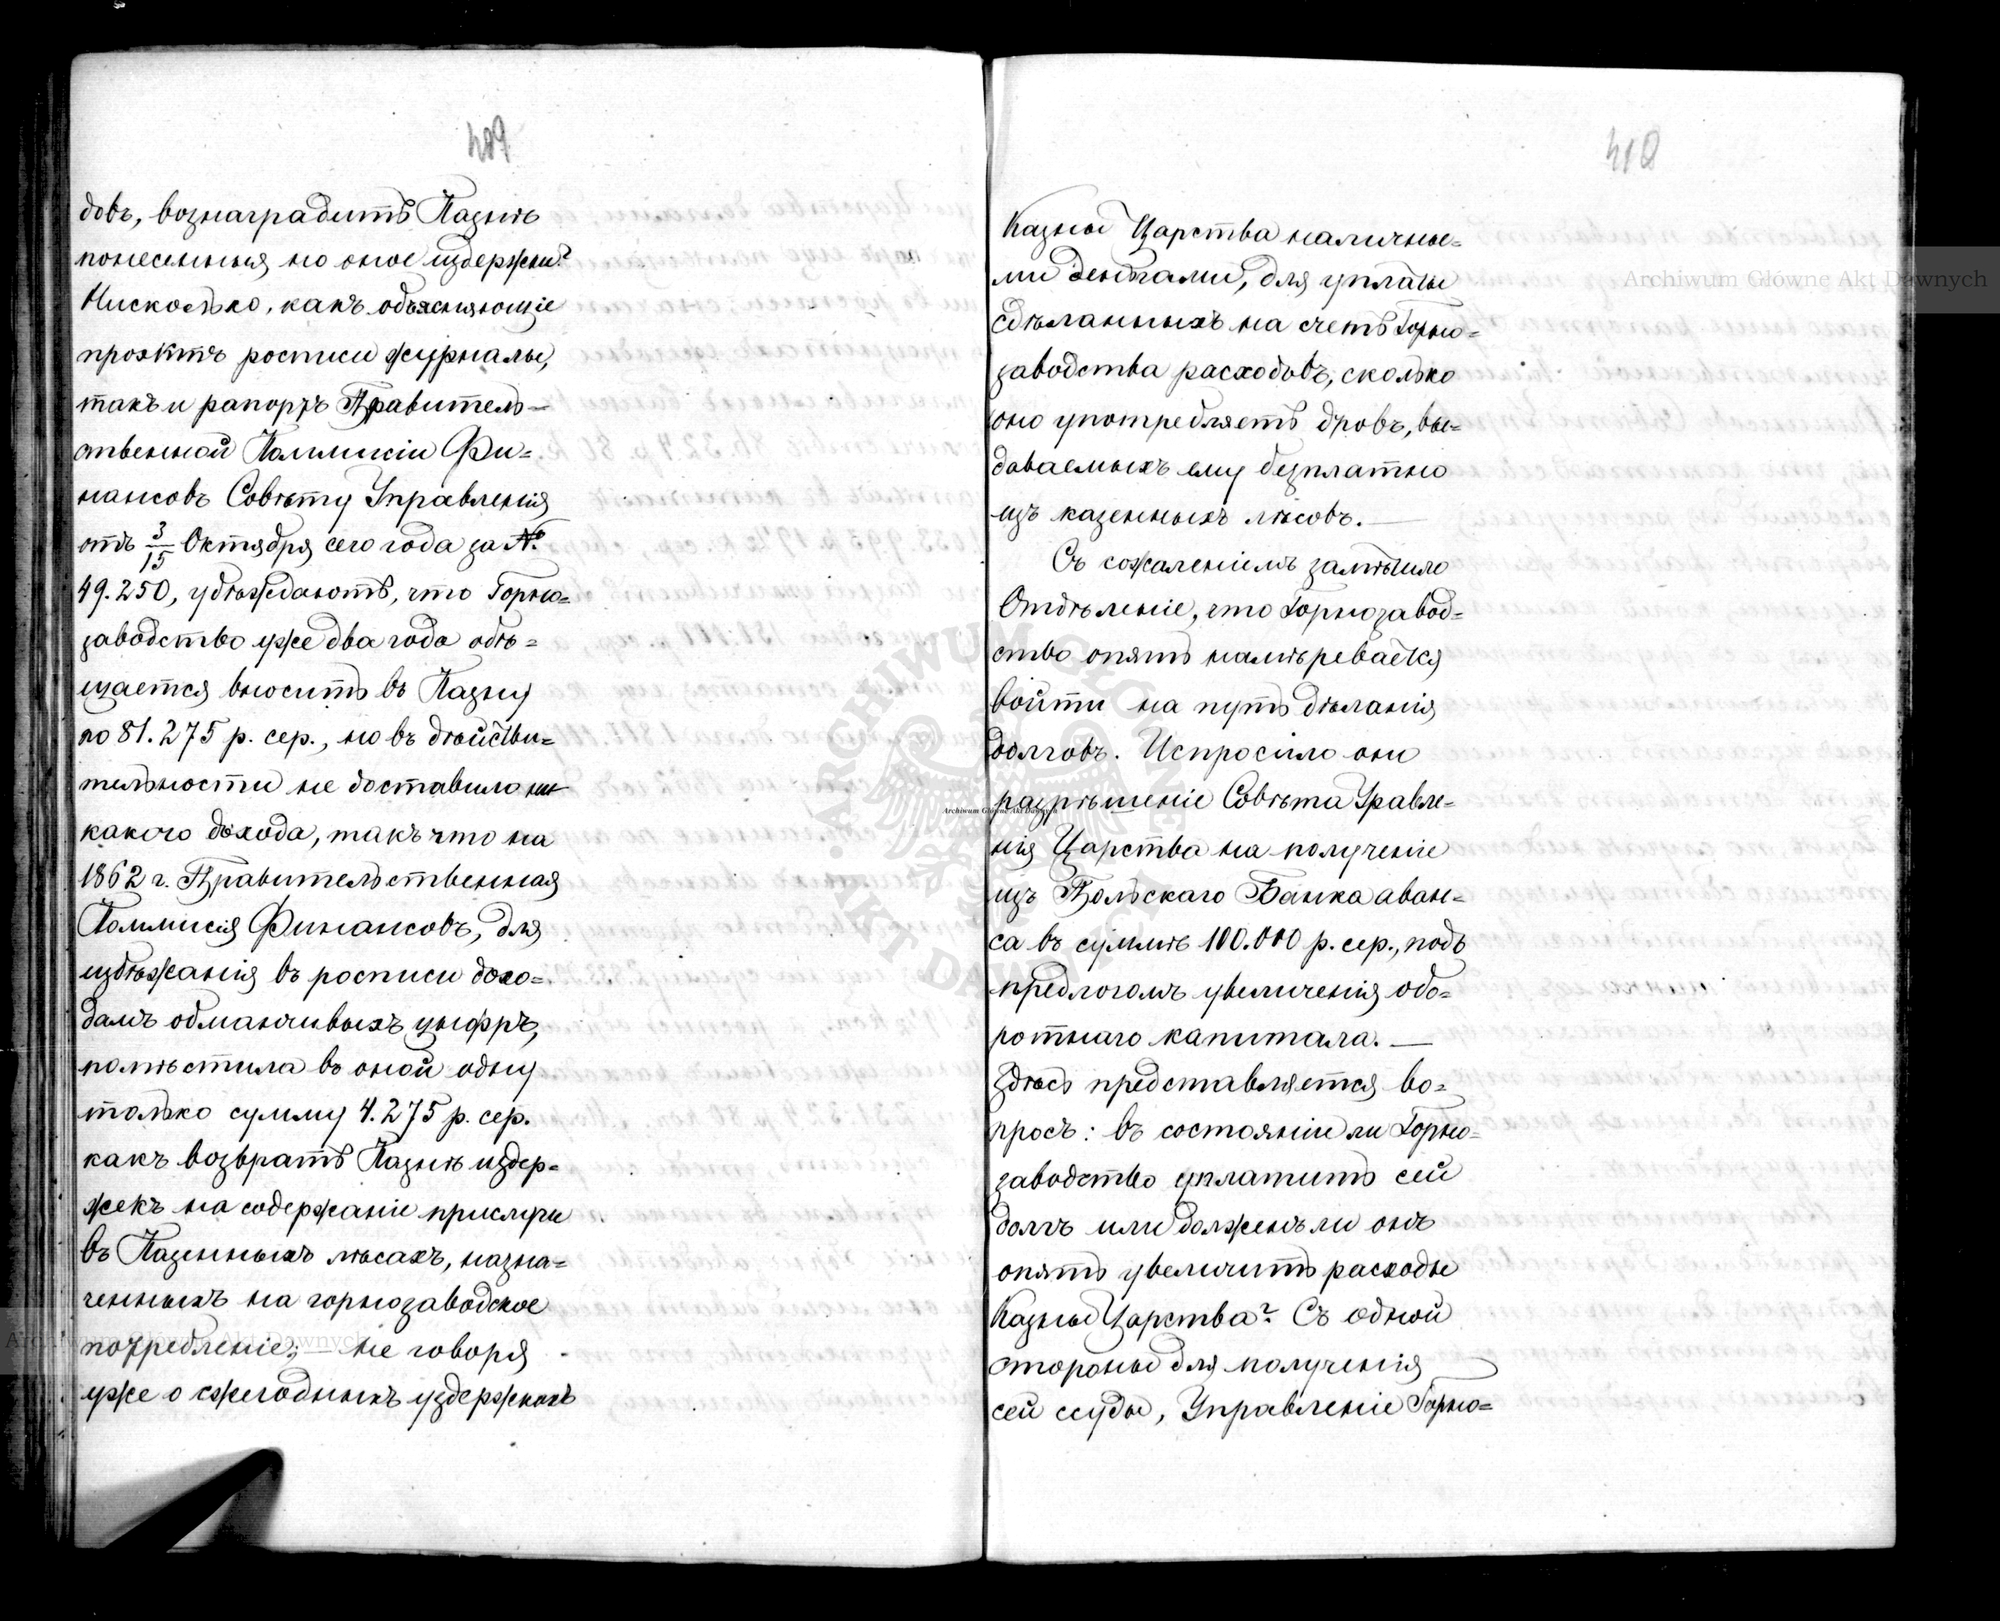 409
довъ, вознаградитъ Казнѣ
понесенныя но оное издержки?
Нисколько, какъ объясняющіе
проэктъ росписи журналы,
такъ и рапортъ Правитель-
ственной Коммисіи Фи=
нансовъ Совѣту Управленія
отъ 3/15 Октября сего года за №
49.250, убѣждаютъ, что Горно=
заводство уже два года обѣ=
щается вносить въ Казну
по 81.275 р. сер., но въ дѣйстви=
тельности не доставило ни
какого дохода, такъ что на
1862 г. Правительственная
Коммисія Финансовъ, для
избѣжанія въ росписи дохо=
дамъ обманчивыхъ цыфръ,
помѣстила въ оной одну
только сумму 4.275 р. сер.
какъ возвратъ Казнѣ издер=
жекъ на содержаніе прислуги
въ Казенныхъ лѣсахъ, назна=
ченныхъ на горнозаводское
потребленіе; — не говоря
уже о ежегодныхъ издержкахъ
410
Казны Царства наличны=
ми деньгами, для уплаты
сдѣланныхъ на счетъ Горно=
заводства расходовъ, сколько
оно употребляетъ дровъ, вы=
даваемыхъ ему безплатно
изъ казенныхъ лѣсовъ. —
Съ сожаленіемъ замѣтило
Отдѣленіе, что Горнозавод=
ство опять намѣревается
войти на путь дѣланія
долговъ. Испросило они
разрѣшеніе Совѣта Управле=
нія Царства на полученіе
изъ Польскаго Банка аван=
са въ суммѣ 100.000 р. сер., подъ
предлогомъ увеличенія обо=
ротнаго капитала. —
Здѣсь представляется во=
просъ: въ состояніи ли Горно=
заводство уплатить сей
долгъ или долженъ ли онъ
опять увеличить расходы
Казны Царства? Съ одной
стороны для полученія
сей ссуды, Управленіе Горно=
Archiwum Główne Akt Dawnych
Archiwum Główne Akt Dawnych
Archiwum Główne Akt Dawnych
ARCHIWUM GŁÓWNE AKT DAWNYCH